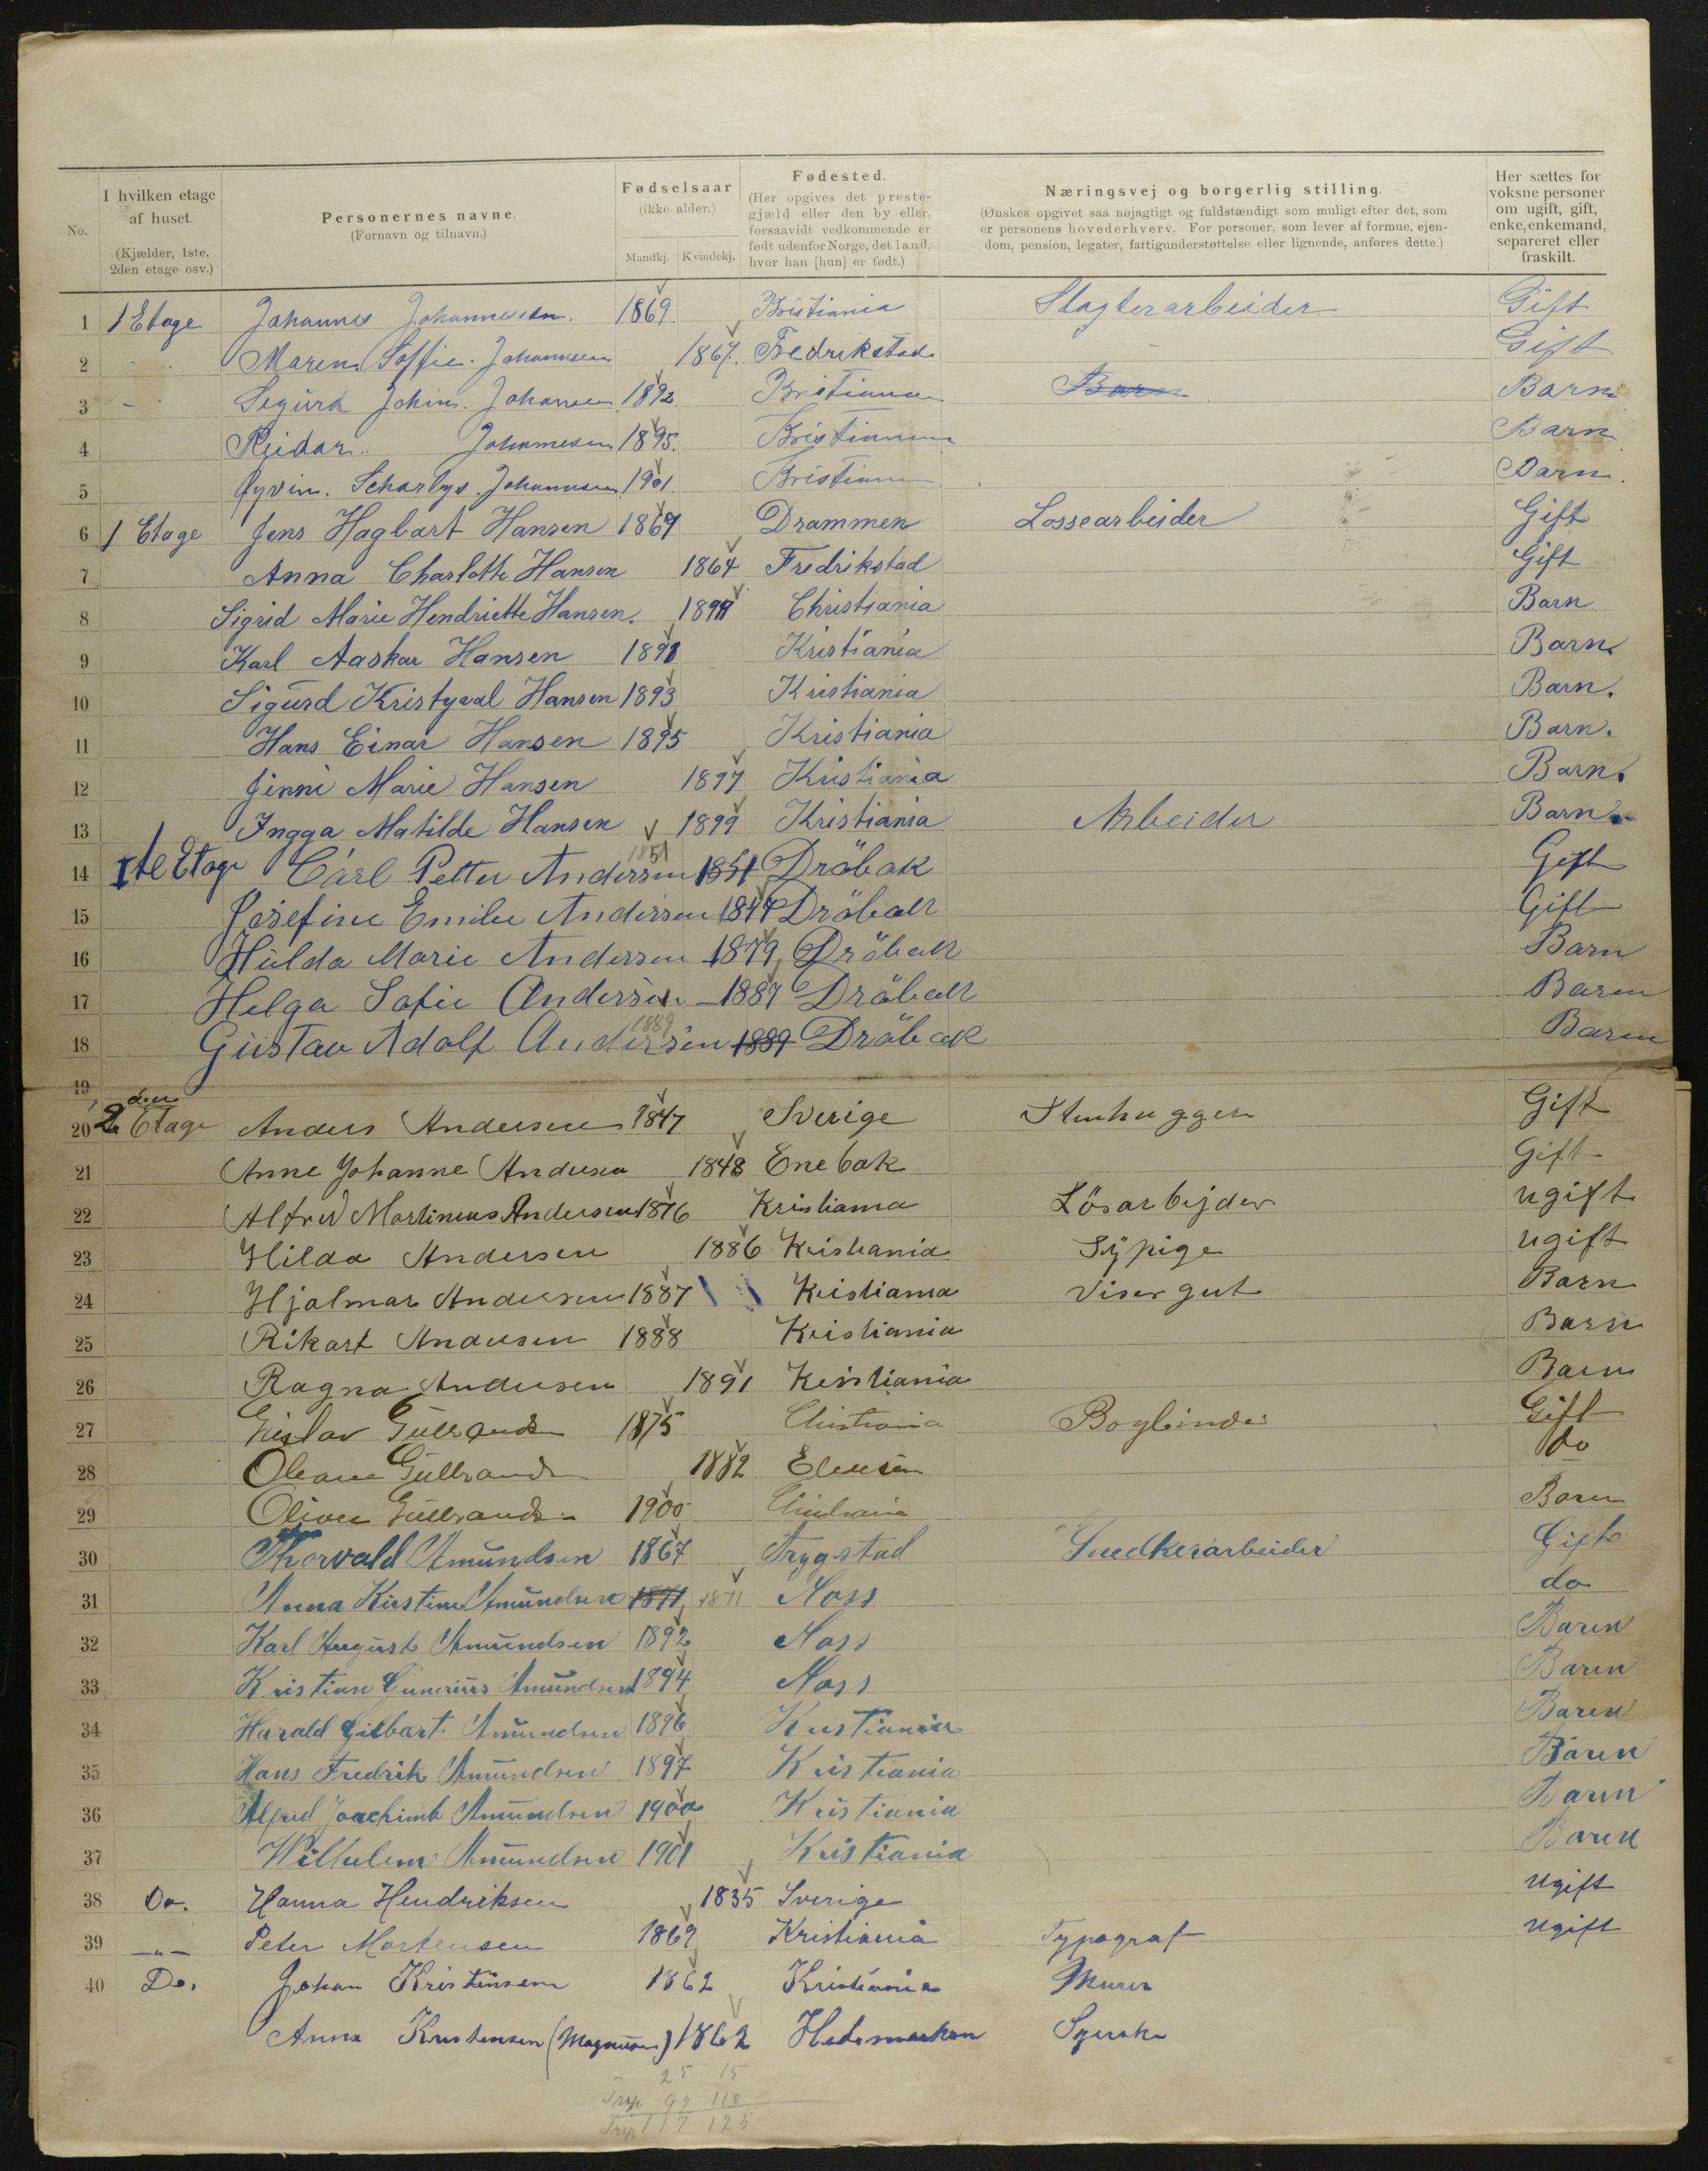 No.
I hvilken etage af huset. (Kjælder, 1ste, 2den etage osv.)
Personernes navne. (Fornavn og tilnavn.)
Fødselsaar (ikke alder.) Mandkj. Kvindekj.
Fødested. (Her opgives det prestegjæld eller den by eller, forsaavidt vedkommende er født udenfor Norge, det land, hvor han [hun] er født.)
Næringsvej og borgerlig stilling. (Ønskes opgivet saa nøjagtigt og fuldstændigt som muligt efter det, som er personens hovederhverv. For personer, som lever af formue, ejendom, pension, legater, fattigunderstøttelse eller lignende, anføres dette.)
Her sættes for voksne personer om ugift, gift, enke, enkemand, separeret eller fraskilt.
1 1 Etage Johannes Johannessen. 1869 Kristiania Slagterarbeider Gift
2 Maren Soffie. Johannsen 1867. Fredrikstad Gift
3 - Sigurd Johansen 1892 Kristiania Barn Barn
4 Reidar. Johannesen 1895. Kristiania Barn
5 Øyvin. Johannesen 1901 Kristiania Barn.
6 1 Etage Jens Hagbart Hansen 1867 Drammen Lossearbeider Gift
7 Anna Charlotte Hansen 1864 Fredrikstad Gift
8 Sigrid Marie Hendriette Hansen. Christiania Barn
9 Karl Aaskar Hansen Kristiania Barn
10 Sigurd Kristyval Hansen 1893 Kristiania Barn.
11 Hans Einar Hansen 1895 Kristiania Barn.
12 Jinni Marie Hansen 1897 Kristiania Barn.
13 Ingga Matilde Hansen 1899 Kristiania Arbeider Barn
14 1ste Etage Carl Petter Andersen 1851 1851 Dröbak Gift
15 Josefine Emilie Andersen 1847 Dröbak Gift
16 Hulda Marie Andersen 1879 Dröbak Barn
17 Helga Sofie Andersen 1887 Dröbak Barn
18 Gustav Adolf Andersen 1889 1889 Dröbak Barn
19
20 2den Etage Anders Andersen 1847 Sverige Stenhugger Gift
21 Anne Johanne Andersen 1848 Enebak Gift
22 Alfred Martinius Andersen 1876 Kristiania Lösarbejder ugift
23 Hilda Andersen 1886 Kristiania Sypige ugift
24 Hjalmar Andersen 1887 Kristiania Visergut Barn
25 Rikart Andersen 1888 Kristiania Barn
26 Ragna Andersen 1891 Kristiania Barn
27 Gullbrands 1875 Christiania Bogbinder Gift
28 Gullbrands 1882 do
29 Gullbrands 1900 Christiania Barn
30 Thorvald Amundsen 1867 Trygstad Snedkerarbeider Gift
31 Anna Kirstine Amundsen 1871 1871 Moss do
32 Karl August Amundsen 1892 Moss Baren
33 Kristian Gunerius Amundsen 1894 Moss Baren
34 Harald Gilbart Amundsen 1896 Kristiania Baren
35 Hans Fredrik Amundsen 1897 Kristiania Baren
36 Alfred Joachimb Amundsen 1900 Kristiania Baren
37 Wilhelm Amundsen 1901 Kristiania Baren
38 Do. Hanna Hendriksen 1835 Sverige ugift
39 -"- Peter Mortensen 1869 Kristiania Typograf ugift
40 Do. Johan Kristensen 1862 Kristiania Murer
Anna Kristensen (Magnusen) 1862 Hedemarken
25 15
92 110
117 125